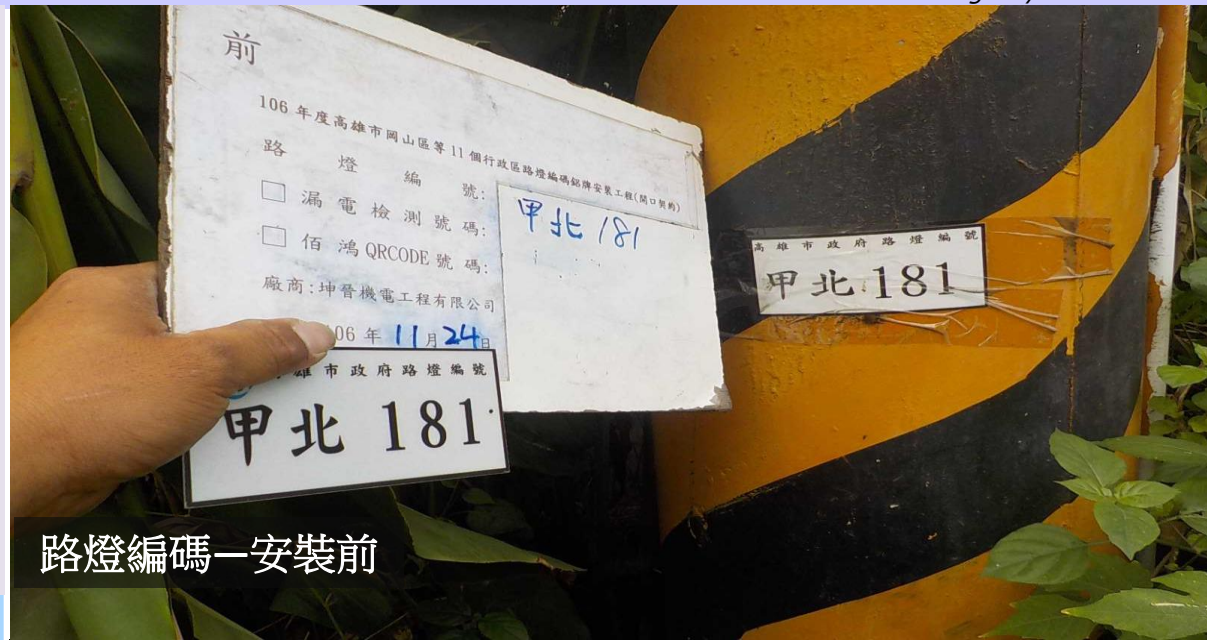 前
106 年度高雄市岡山區等 11 個行政區路燈編碼鋁牌安裝工程(開口契約)
路燈編號:
甲北 181
□ 漏電檢測號碼:
□ 佰鴻 QRCODE 號碼:
廠商:坤晉機電工程有限公司
106 年 11 月 24 日
雄市政府路燈編號
甲北 181
高雄市政府路燈編號
甲北 181
路燈編碼—安裝前